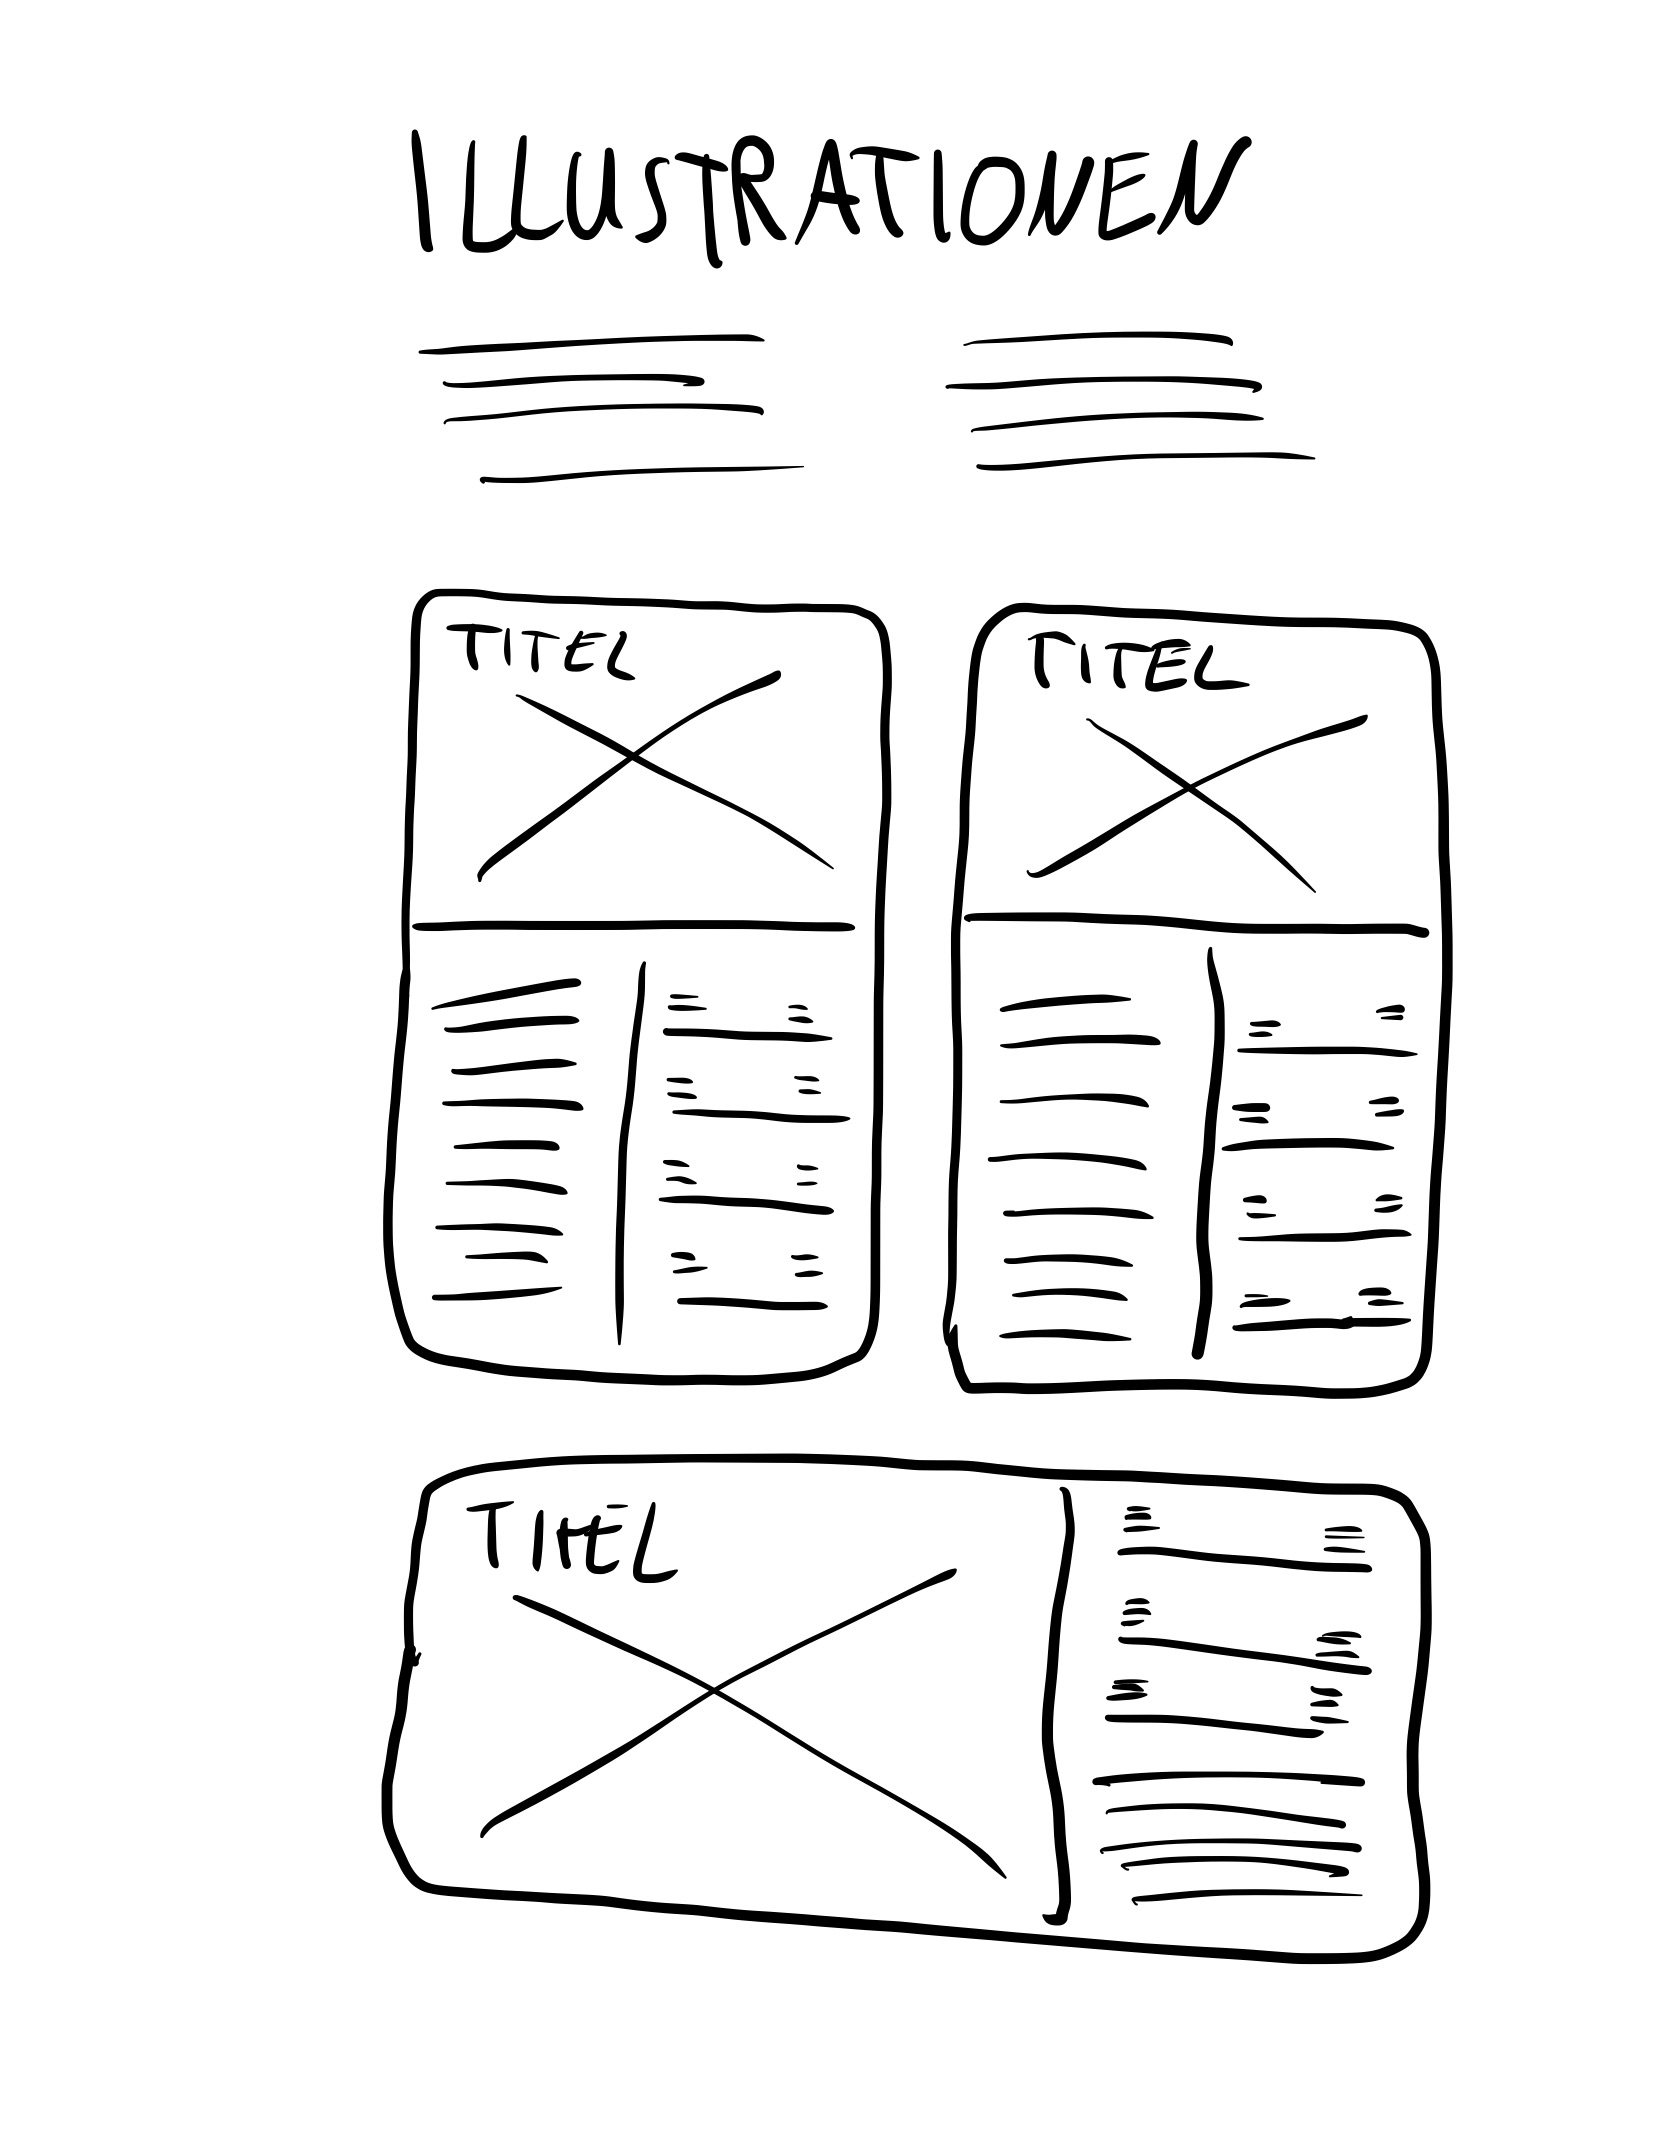 ILLUSTRATIONEN
TITEL
TITEL
TITEL